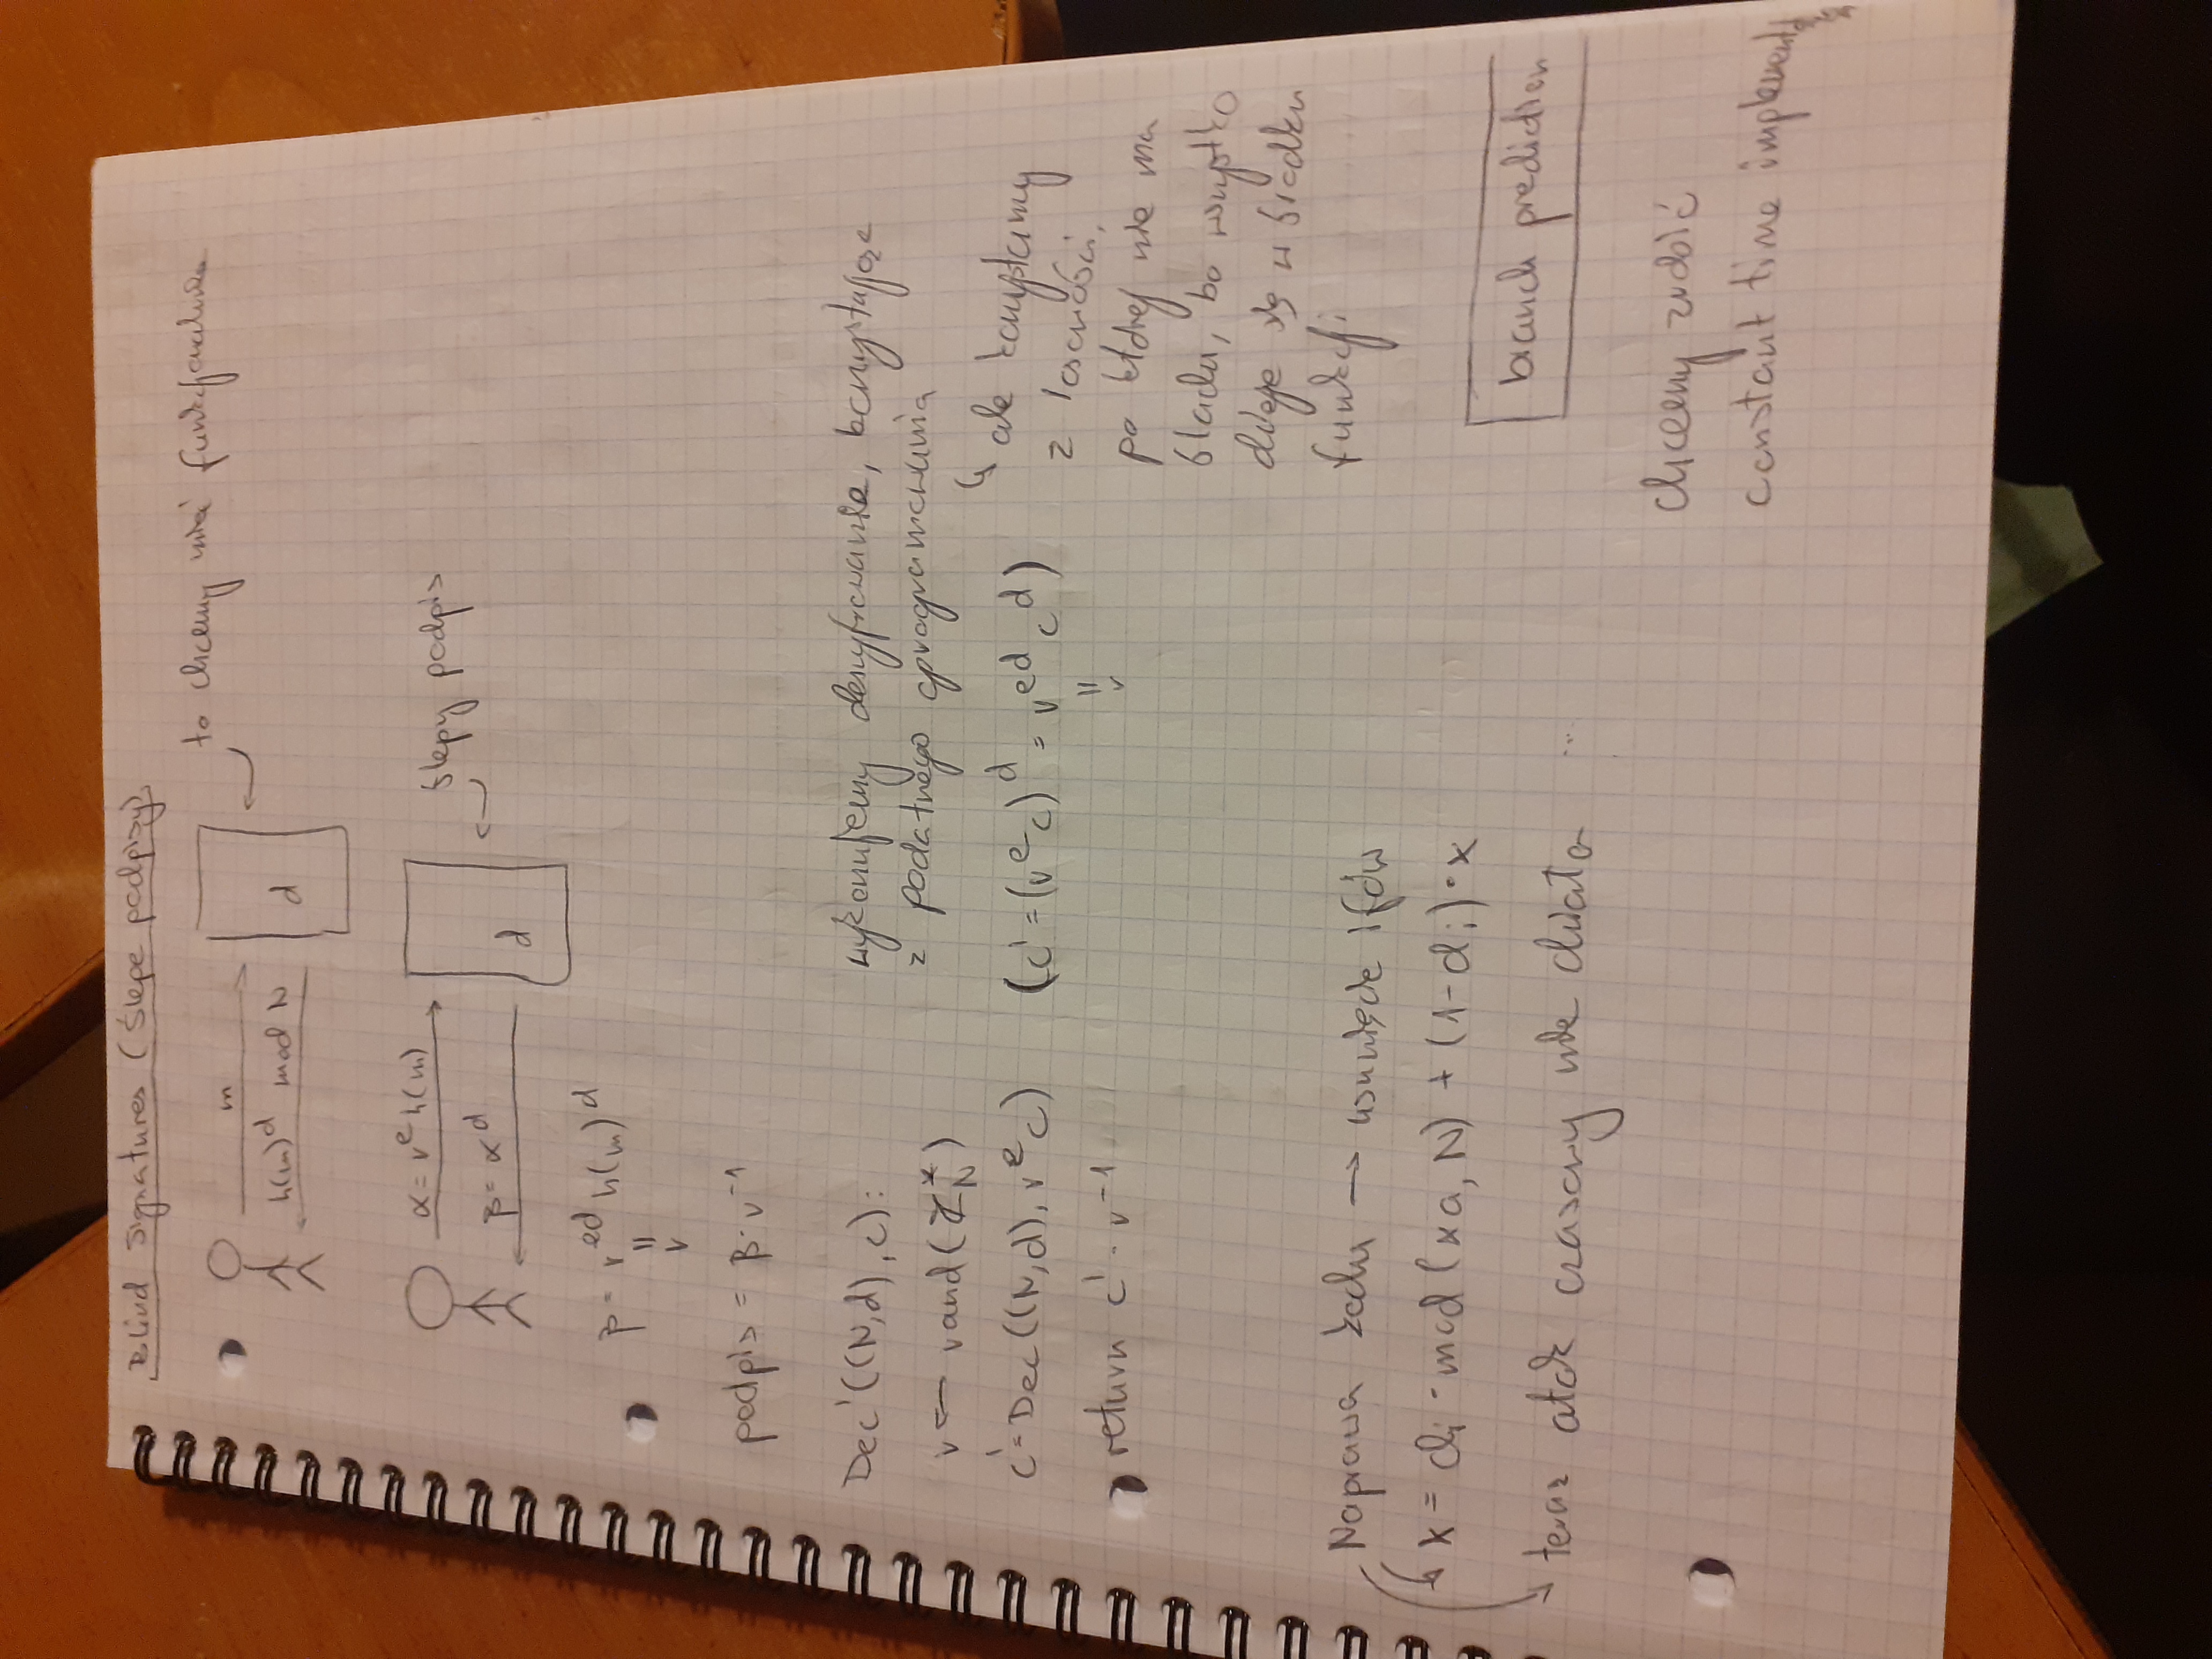 Blind Signatures (Ślepe podpisy)
m
to chcemy mieć funkcjonalnie
h(m)^d mod N
d
α = r^e h(m)
ślepy podpis
β = α^d
d
β = r^ed h(m)^d
=
r
podpis = β · r^-1
Dec'((N,d), c):
r ← rand(Z_N^*)
c' = Dec((N,d), r^e c)
return c' · r^-1
wykonujemy deszyfrowanie, korzystając
z podatnego oprogramowania
(c' = (r^e c)^d = r^ed c^d)
=
r
↳ ale korzystamy
z losowości,
po której nie ma
śladu, bo wszystko
dzieje się w środku
funkcji
Naprawa kodu → usunięcie ifów
x = d_i · mod(xa, N) + (1-d_i) · x
teraz atak czasowy nie działa ...
branch prediction
chcemy zrobić
constant time implementation